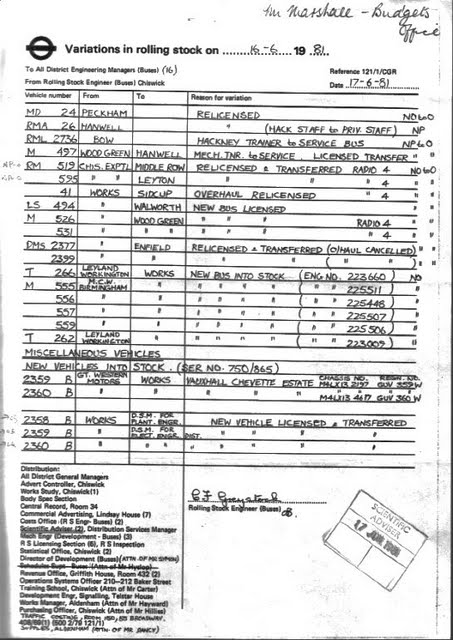 Mr Marshall - Budgets
Office
Variations in rolling stock on 16-6 19 81.
To All District Engineering Managers (Buses) (16)
Reference 121/1/CGR
From Rolling Stock Engineer (Buses) Chiswick
Date 17-6-81
Vehicle number From To Reason for variation
MD 24 PECKHAM RELICENSED NO to O
RMA 26 HANWELL " (HACK STAFF to PRIV. STAFF) NP
RML 2736 BOW HACKNEY TRAINER to SERVICE BUS NP to O
M 497 WOOD GREEN HANWELL MECH. TNR. to SERVICE. LICENSED TRANSFER " "
RM 519 CHIS. EXPTL MIDDLE ROW RELICENSED & TRANSFERRED RADIO 4 NO to O
595 " " LEYTON " " " 4 " "
41 WORKS SIDCUP OVERHAUL RELICENSED " 4 " "
LS 494 " WALWORTH NEW BUS LICENSED " "
M 526 " WOOD GREEN " " " RADIO 4 " "
531 " " " " " " " 4 " "
DMS 2377 " ENFIELD RELICENSED & TRANSFERRED (O/HAUL CANCELLED) " "
2399 " " " " " ( " " ) " "
T 266 LEYLAND WORKINGTON WORKS NEW BUS INTO STOCK (ENG NO. 223660) NO
M 555 M.C.W. BIRMINGHAM " " " " " ( " " 225511) "
556 " " " " " " ( " " 225448) "
557 " " " " " " ( " " 225507) "
559 " " " " " " ( " " 225506) "
T 262 LEYLAND WORKINGTON " " " " " ( " " 223009) "
MISCELLANEOUS VEHICLES
NEW VEHICLES INTO STOCK. (SER NO. 750/865)
CHASSIS NO. REGN. NO.
2359 B GT. WESTERN MOTORS WORKS VAUXHALL CHEVETTE ESTATE M4LX13 2197 GUV 359 W
2360 B " " " " " M4LX13 4617 GUV 360 W
2358 B WORKS D.S.M. FOR PLANT. ENGR. NEW VEHICLE LICENSED & TRANSFERRED
2359 B " D.S.M. FOR ELECT. ENGR. DIST. " " " "
2360 B " " " " " " " "
Distribution:
All District General Managers
Advert Controller, Chiswick
Works Study, Chiswick(1)
Body Spec Section
Central Record, Room 34
Commercial Advertising, Lindsay House (7)
Costs Office (R S Engr Buses) (2)
Scientific Adviser (2), Distribution Services Manager
Mech Engr (Development) (3)
R S Licensing Section (6), R S Inspection
Statistical Office, Chiswick (2)
Director of Development (Buses)
Schedules Supt Buses (Attn of Mr Hyslop)
Revenue Office, Griffith House, Room 432 (2)
Operations Systems Officer 210-212 Baker Street
Training School, Chiswick (Attn of Mr Carter)
Development Engr, Signalling, Telstar House
Works Manager, Aldenham (Attn of Mr Hayward)
Purchasing Officer, Chiswick (Attn of Mr Hillies)
TRAFFIC COSTING, ROOM 150, 55 BROADWAY.
Rolling Stock Engineer (Buses)
SCIENTIFIC
ADVISER
17 JUN 1981